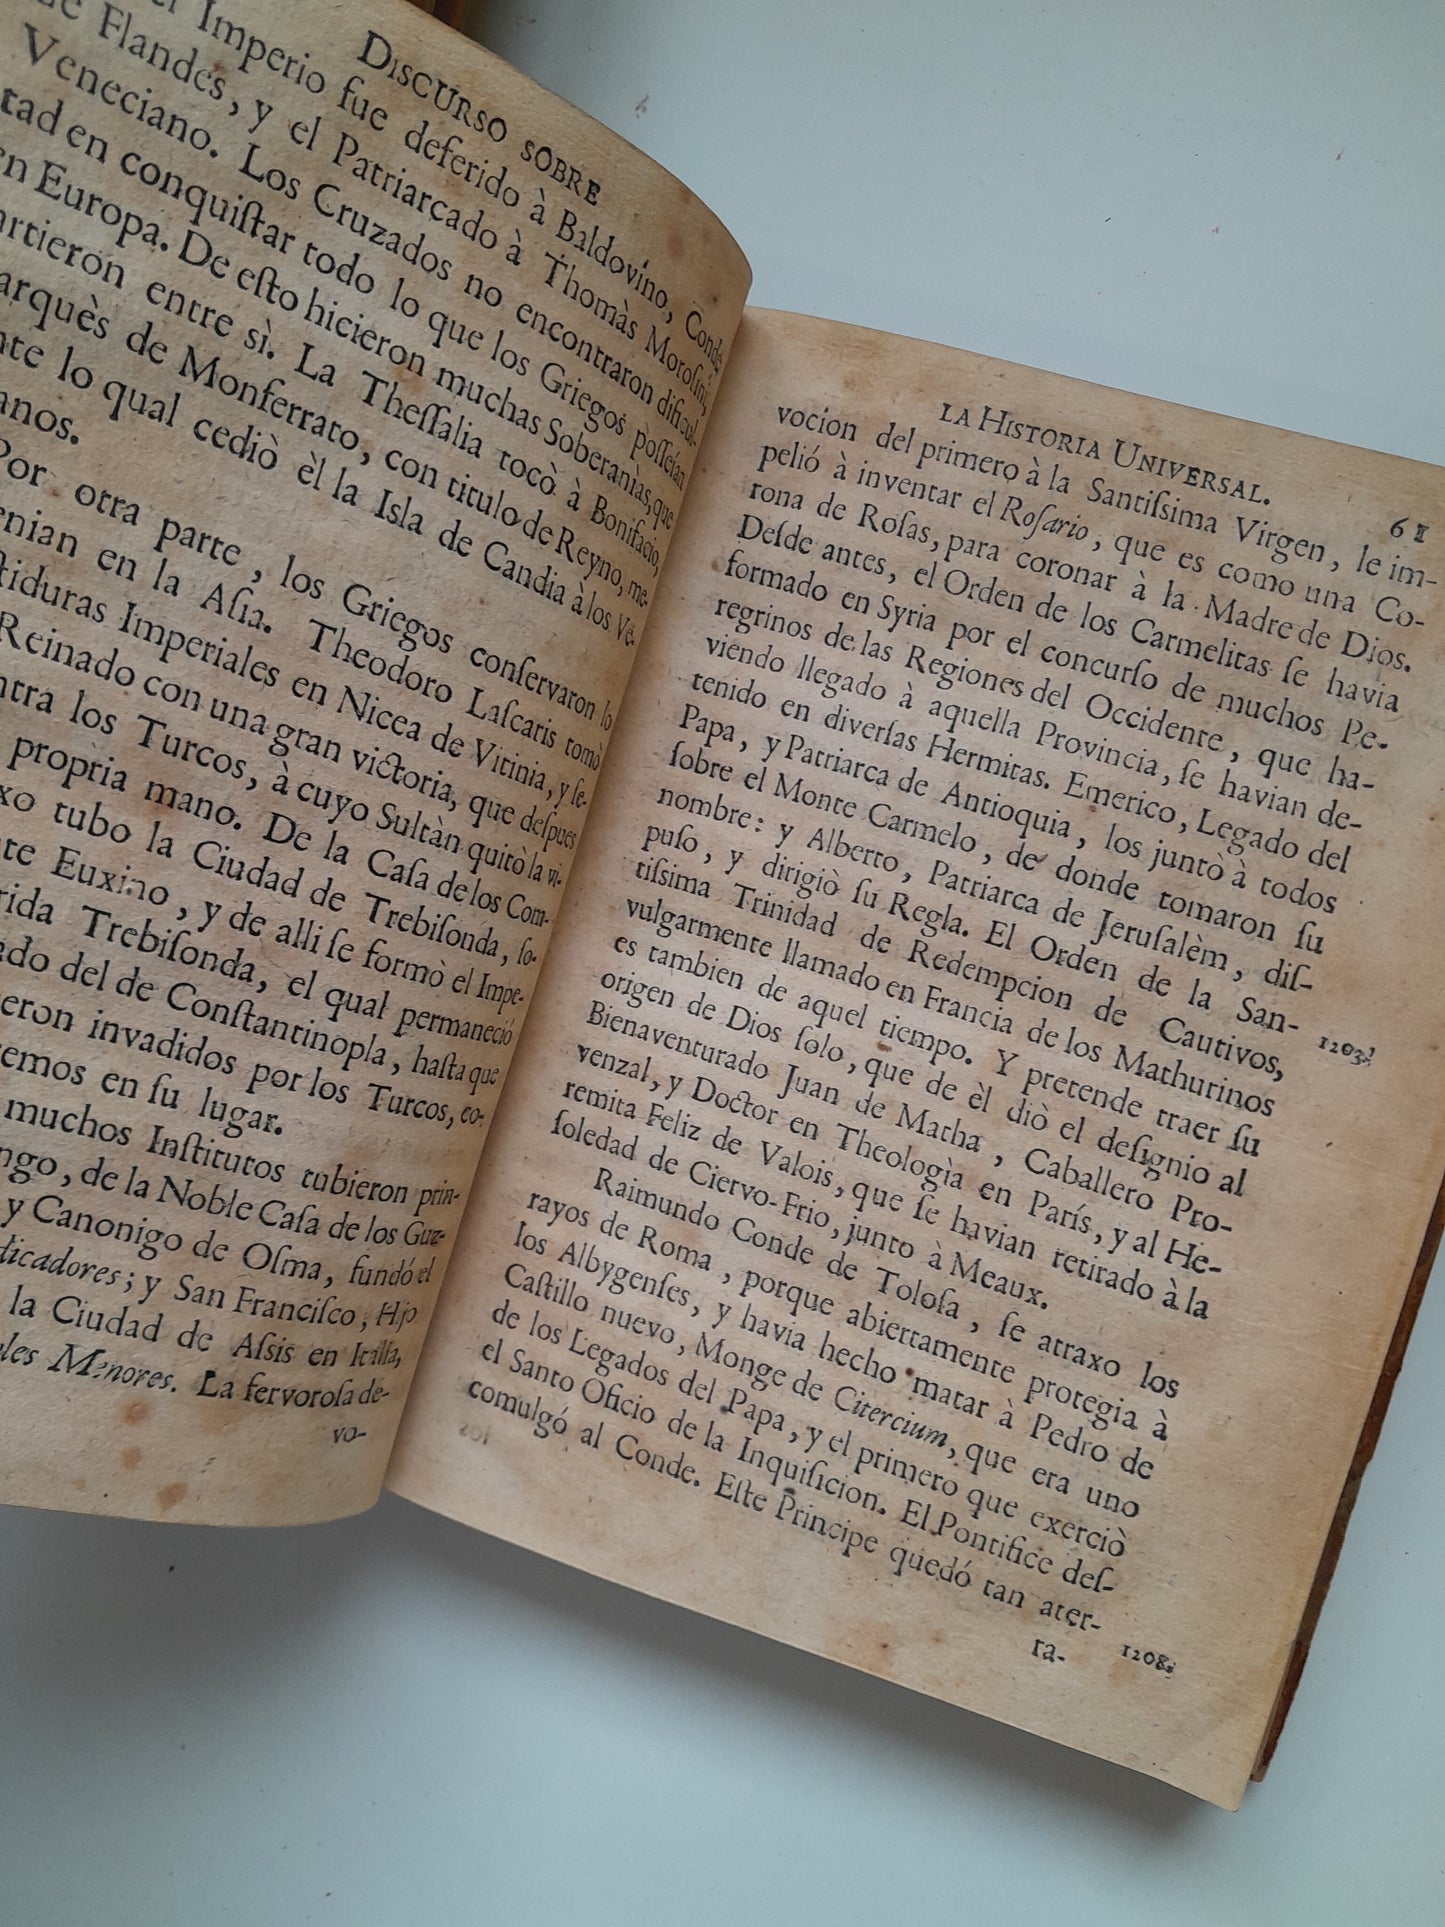 DISCURSO SOBRE
Imperio fue deferido à Baldovino, Conde
Flandes, y el Patriarcado à Thomàs Moroſini,
Veneciano. Los Cruzados no encontraron dificul-
tad en conquiſtar todo lo que los Griegos poſſeían
en Europa. De eſto hicieron muchas Soberanìas, que
entre sì. La Theſſalia tocò à Bonifacio,
de Monferrato, con titulo de Reyno, me-
lo qual cediò èl la Isla de Candia à los Ve-
Por otra parte, los Griegos conſervaron lo
en la Aſia. Theodoro Laſcaris tomò
Imperiales en Nicea de Vitinia, y ſe-
Reinado con una gran victoria, que deſpues
los Turcos, à cuyo Sultàn quitò la vi-
propria mano. De la Caſa de los Com-
tubo la Ciudad de Trebiſonda, ſo-
Euxino, y de alli ſe formò el Impe-
Trebiſonda, el qual permaneció
del de Conſtantinopla, haſta que
invadidos por los Turcos, co-
en ſu lugar.
muchos Inſtitutos tubieron prin-
de la Noble Caſa de los Guz-
y Canonigo de Oſma, fundó el
y San Franciſco, Hijo
la Ciudad de Aſsis en Italia,
Menores. La fervoroſa de-
vo-
LA HISTORIA UNIVERSAL.
61
vocion del primero à la Santiſsima Virgen, le im-
pelió à inventar el Roſario, que es como una Co-
rona de Roſas, para coronar à la Madre de Dios.
Deſde antes, el Orden de los Carmelitas ſe havia
formado en Syria por el concurſo de muchos Pe-
regrinos de las Regiones del Occidente, que ha-
viendo llegado à aquella Provincia, ſe havian de-
tenido en diverſas Hermitas. Emerico, Legado del
Papa, y Patriarca de Antioquia, los juntò à todos
ſobre el Monte Carmelo, de donde tomaron ſu
nombre: y Alberto, Patriarca de Jeruſalèm, diſ-
puſo, y dirigiò ſu Regla. El Orden de la San-
tiſsima Trinidad de Redempcion de Cautivos,
1203.
vulgarmente llamado en Francia de los Mathurinos
es tambien de aquel tiempo. Y pretende traer ſu
origen de Dios ſolo, que de èl diò el deſignio al
Bienaventurado Juan de Matha, Caballero Pro-
venzal, y Doctor en Theologìa en París, y al He-
remita Feliz de Valois, que ſe havian retirado à la
ſoledad de Ciervo-Frio, junto à Meaux.
Raimundo Conde de Toloſa, ſe atraxo los
rayos de Roma, porque abiertamente protegia à
los Albygenſes, y havia hecho matar à Pedro de
Caſtillo nuevo, Monge de Citercium, que era uno
de los Legados del Papa, y el primero que exerciò
el Santo Oficio de la Inquiſicion. El Pontifice deſ-
comulgó al Conde. Eſte Principe quedó tan ater-
ra-
1208.